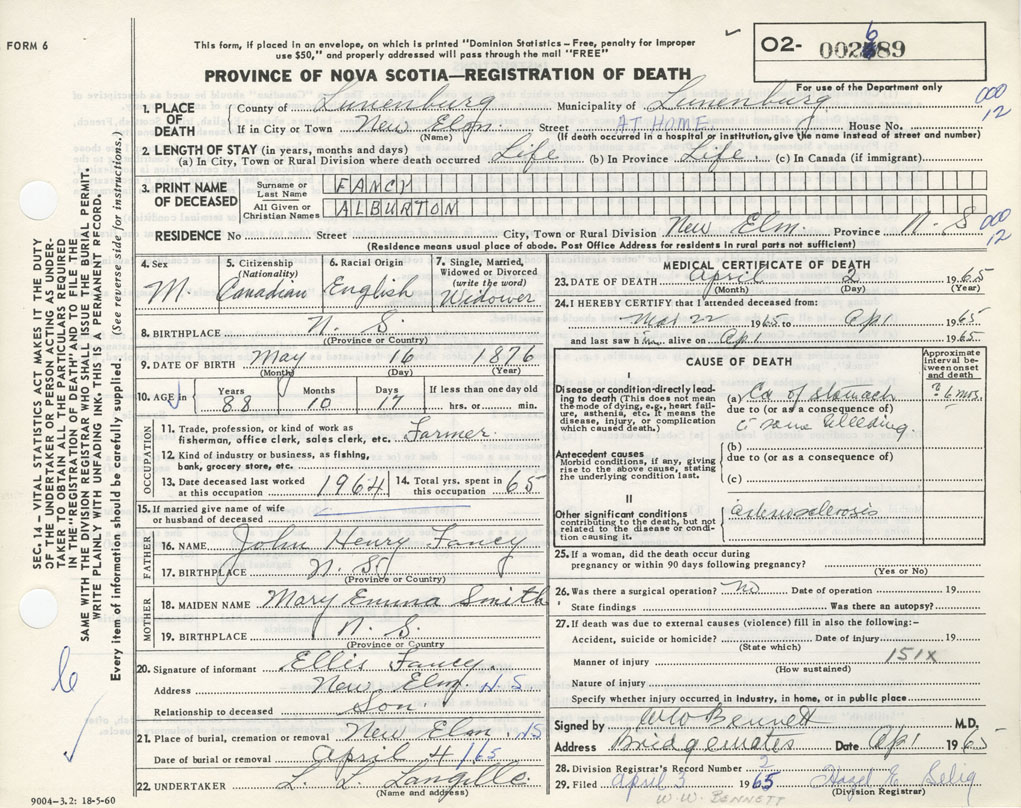 FORM 6
This form, if placed in an envelope, on which is printed "Dominion Statistics – Free, penalty for improper
use $50," and properly addressed will pass through the mail "FREE"
02- 002689
For use of the Department only
PROVINCE OF NOVA SCOTIA—REGISTRATION OF DEATH
1. PLACE OF DEATH County of Lunenburg Municipality of Lunenburg 000 12
If in City or Town New Elm (Name) Street AT HOME House No.
(If death occurred in a hospital or institution, give the name instead of street and number)
2. LENGTH OF STAY (in years, months and days)
(a) In City, Town or Rural Division where death occurred Life (b) In Province Life (c) In Canada (if immigrant)
3. PRINT NAME OF DECEASED Surname or Last Name FANCY
All Given or Christian Names ALBURTON
RESIDENCE No Street City, Town or Rural Division New Elm Province N. S 000 12
(Residence means usual place of abode. Post Office Address for residents in rural parts not sufficient)
4. Sex M.
5. Citizenship (Nationality) Canadian
6. Racial Origin English
7. Single, Married, Widowed or Divorced (write the word) Widower
8. BIRTHPLACE N. S. (Province or Country)
9. DATE OF BIRTH May 16 1876
(Month) (Day) (Year)
10. AGE in Years 88 Months 10 Days 17 If less than one day old hrs. or min.
OCCUPATION
11. Trade, profession, or kind of work as fisherman, office clerk, sales clerk, etc. Farmer.
12. Kind of industry or business, as fishing, bank, grocery store, etc.
13. Date deceased last worked at this occupation 1964 14. Total yrs. spent in this occupation 65
15. If married give name of wife or husband of deceased
FATHER
16. NAME John Henry Fancy
17. BIRTHPLACE N. S. (Province or Country)
MOTHER
18. MAIDEN NAME Mary Emma Smith
19. BIRTHPLACE N. S. (Province or Country)
20. Signature of informant Ellis Fancy.
Address New Elm. N.S
Relationship to deceased Son.
21. Place of burial, cremation or removal New Elm. NS
Date of burial or removal April 4/65
22. UNDERTAKER L. L. Langille.
(Name and address)
MEDICAL CERTIFICATE OF DEATH
23. DATE OF DEATH April 2 1965
(Month) (Day) (Year)
24. I HEREBY CERTIFY that I attended deceased from:
Mar 22 1965 to Ap 1 1965
and last saw him alive on Ap 1 1965
CAUSE OF DEATH
Approximate interval between onset and death
I
Disease or condition directly leading to death (This does not mean the mode of dying, e.g., heart failure, asthenia, etc. It means the disease, injury, or complication which caused death.)
(a) Ca of stomach ? 6 mos.
due to (or as a consequence of)
c̄ some bleeding.
Antecedent causes
Morbid conditions, if any, giving rise to the above cause, stating the underlying condition last.
(b)
due to (or as a consequence of)
(c)
II
Other significant conditions
contributing to the death, but not related to the disease or condition causing it.
Arteriosclerosis
25. If a woman, did the death occur during
pregnancy or within 90 days following pregnancy?
(Yes or No)
26. Was there a surgical operation? No Date of operation 19
State findings Was there an autopsy?
27. If death was due to external causes (violence) fill in also the following:–
Accident, suicide or homicide? Date of injury 19
(State which)
Manner of injury 151X
(How sustained)
Nature of injury
Specify whether injury occurred in industry, in home, or in public place
Signed by WW Bennett M.D.
Address Bridgewater Date Ap 1 1965
28. Division Registrar's Record Number 2
29. Filed April 3 1965 Hazel E Selig
W. W. BENNETT (Division Registrar)
SEC. 14 – VITAL STATISTICS ACT MAKES IT THE DUTY
OF THE UNDERTAKER OR PERSON ACTING AS UNDER-
TAKER TO OBTAIN ALL THE PARTICULARS REQUIRED
IN THE "REGISTRATION OF DEATH" AND TO FILE THE
SAME WITH THE DIVISION REGISTRAR WHO SHALL ISSUE THE BURIAL PERMIT.
WRITE PLAINLY WITH UNFADING INK. THIS IS A PERMANENT RECORD.
Every item of information should be carefully supplied. (See reverse side for instructions.)
6
9004–3.2: 18-5-60